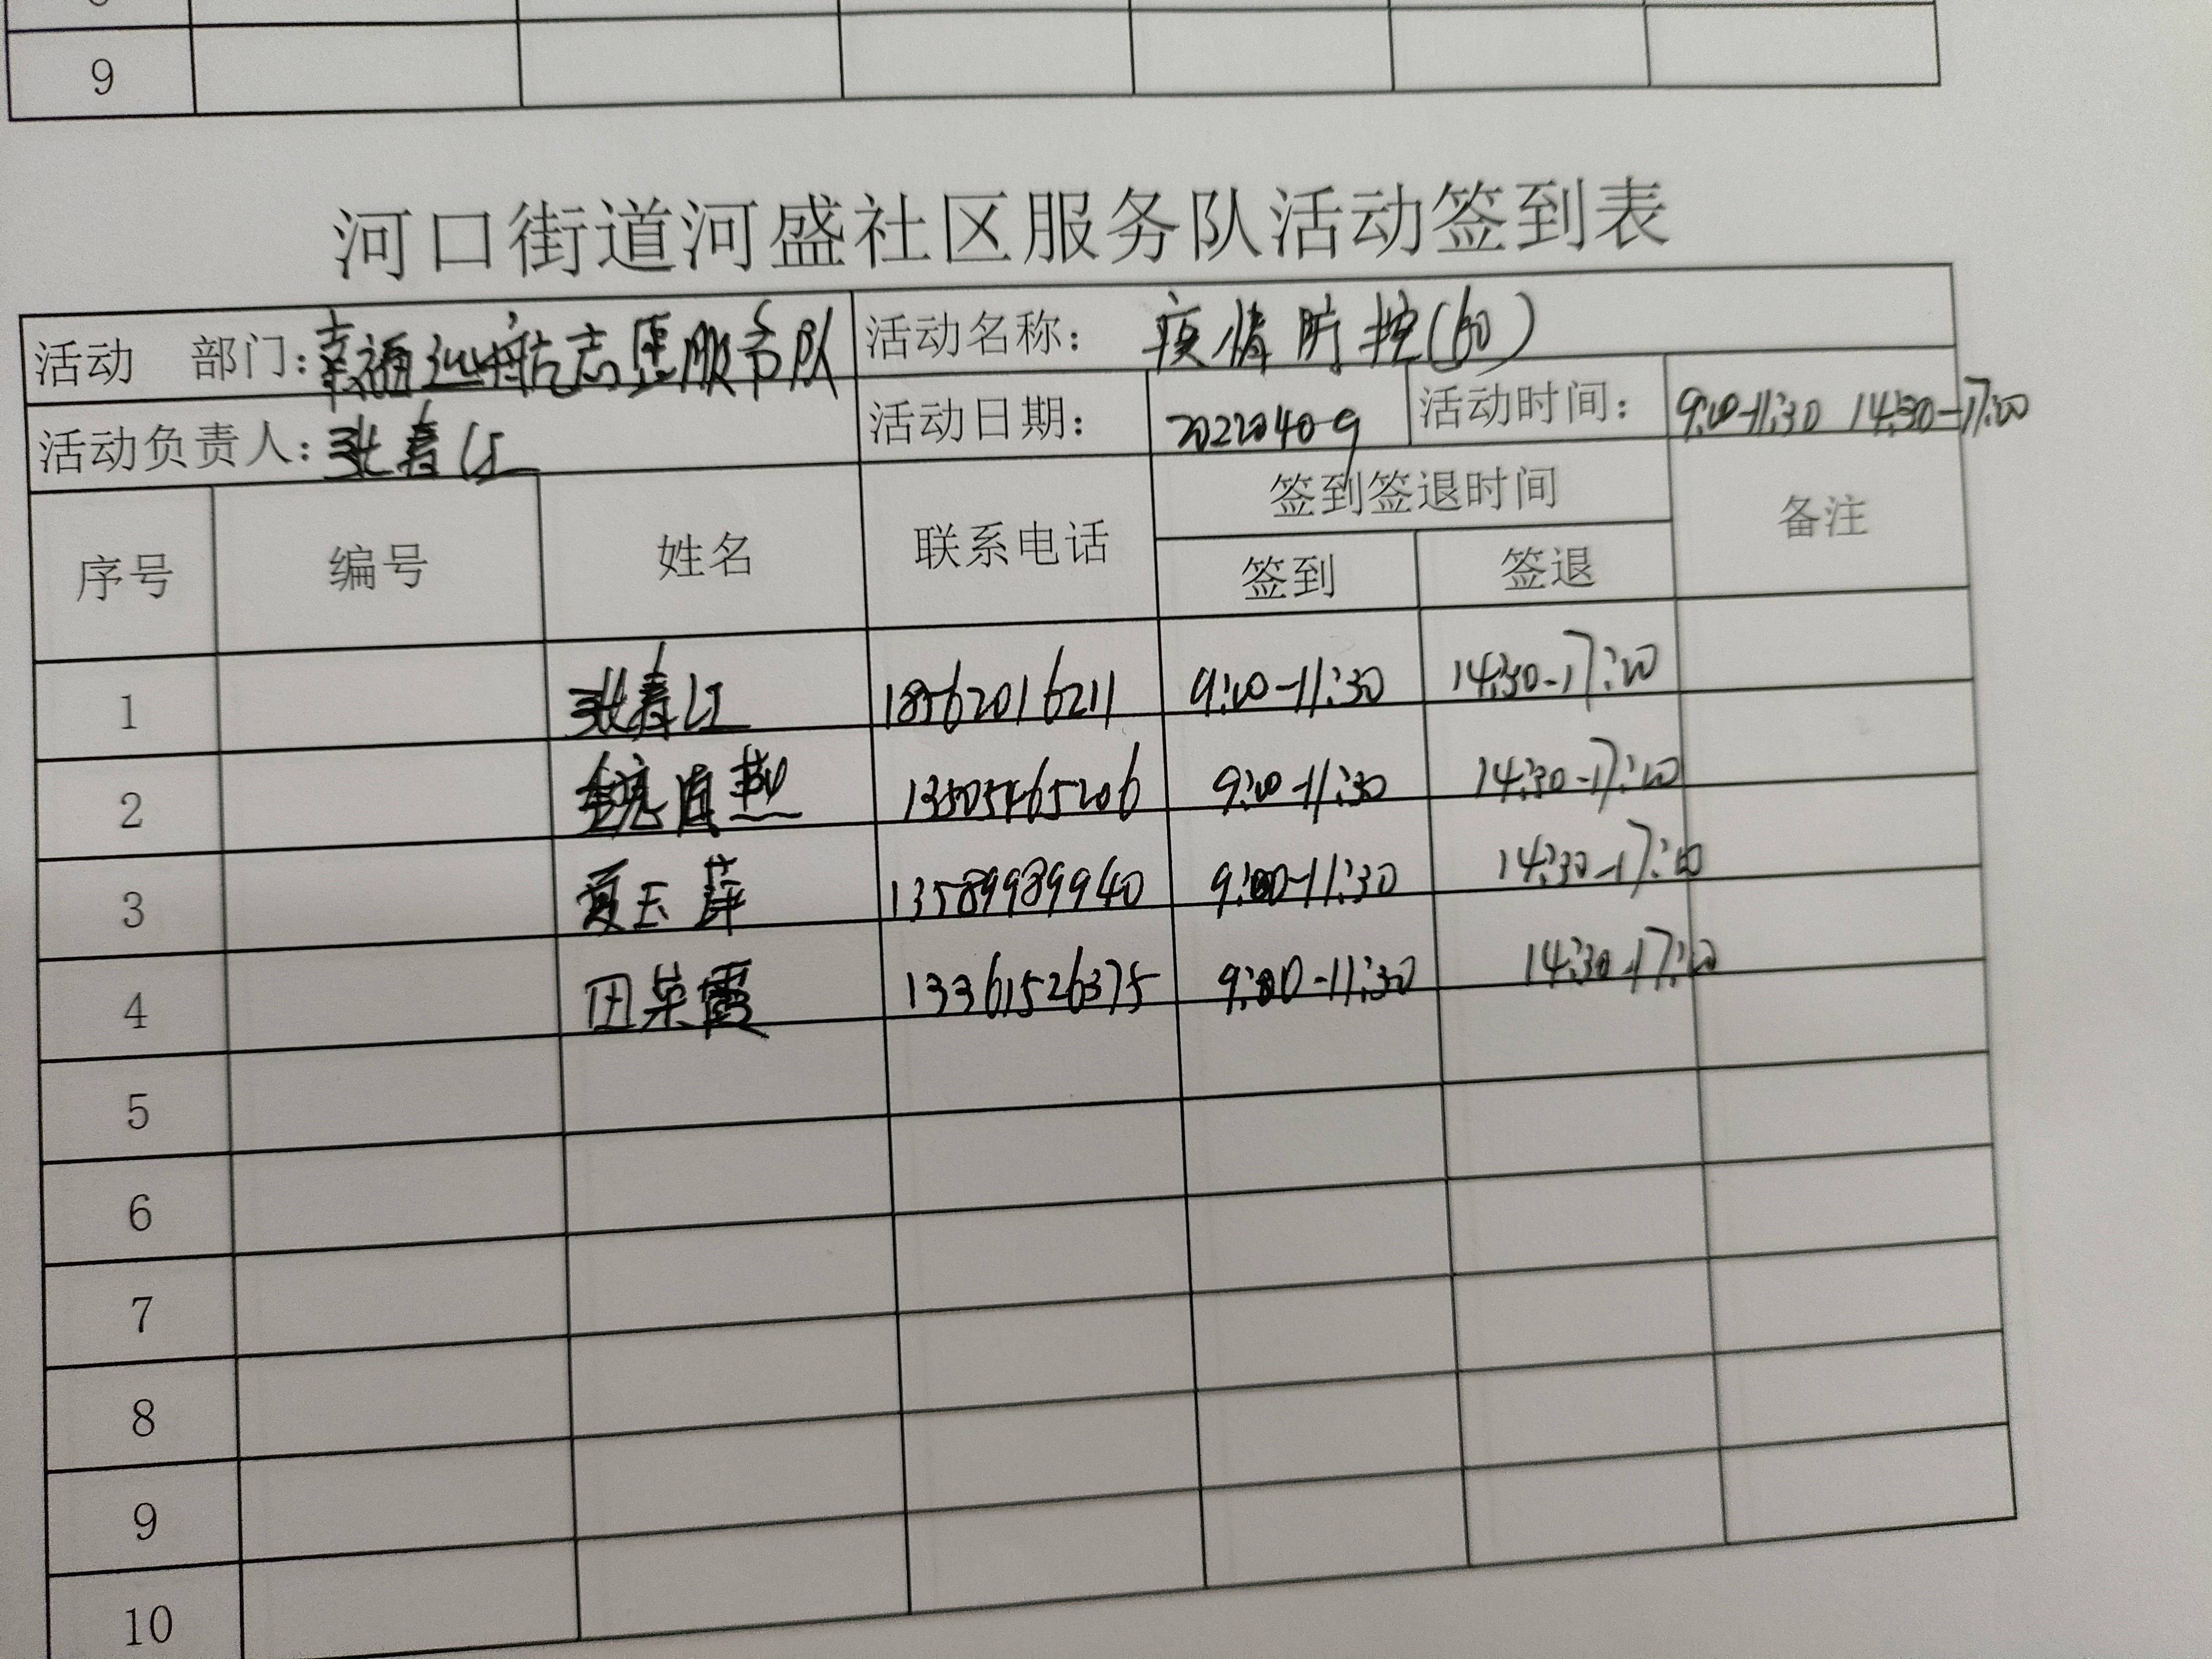 9
河口街道河盛社区服务队活动签到表
活动 部门：幸福巡航志愿服务队 活动名称： 疫情防控(60)
活动负责人：张春红 活动日期： 20220409 活动时间： 9:00-11:30 14:30-17:00
序号 编号 姓名 联系电话 签到签退时间 备注
签到 签退
1 张春红 18562016211 9:00-11:30 14:30-17:00
2 13505465206 9:00-11:30 14:30-17:00
3 夏玉萍 13589989940 9:00-11:30 14:30-17:00
4 田荣霞 13361526375 9:00-11:30 14:30-17:00
5
6
7
8
9
10